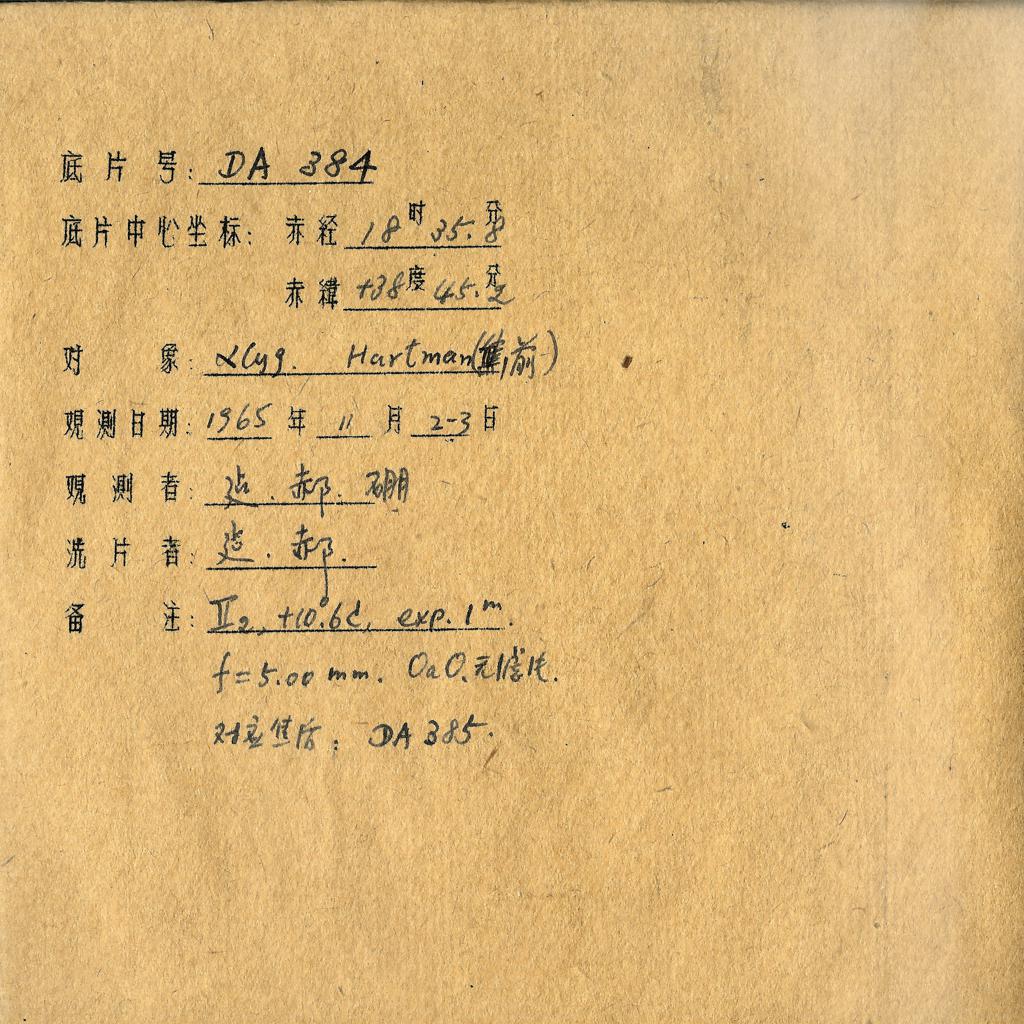 底片号: DA 384
底片中心坐标: 赤经 18时 35.8分
赤緯 +38度 45.2分
对象: αCyg. Hartman(焦前)
观測日期: 1965年 11月 2-3日
观測者: 郝. 硼
洗片者: 郝.
备注: II2, +10°.6C, exp. 1m.
f=5.00 mm. OaO.
对应焦后: DA 385.